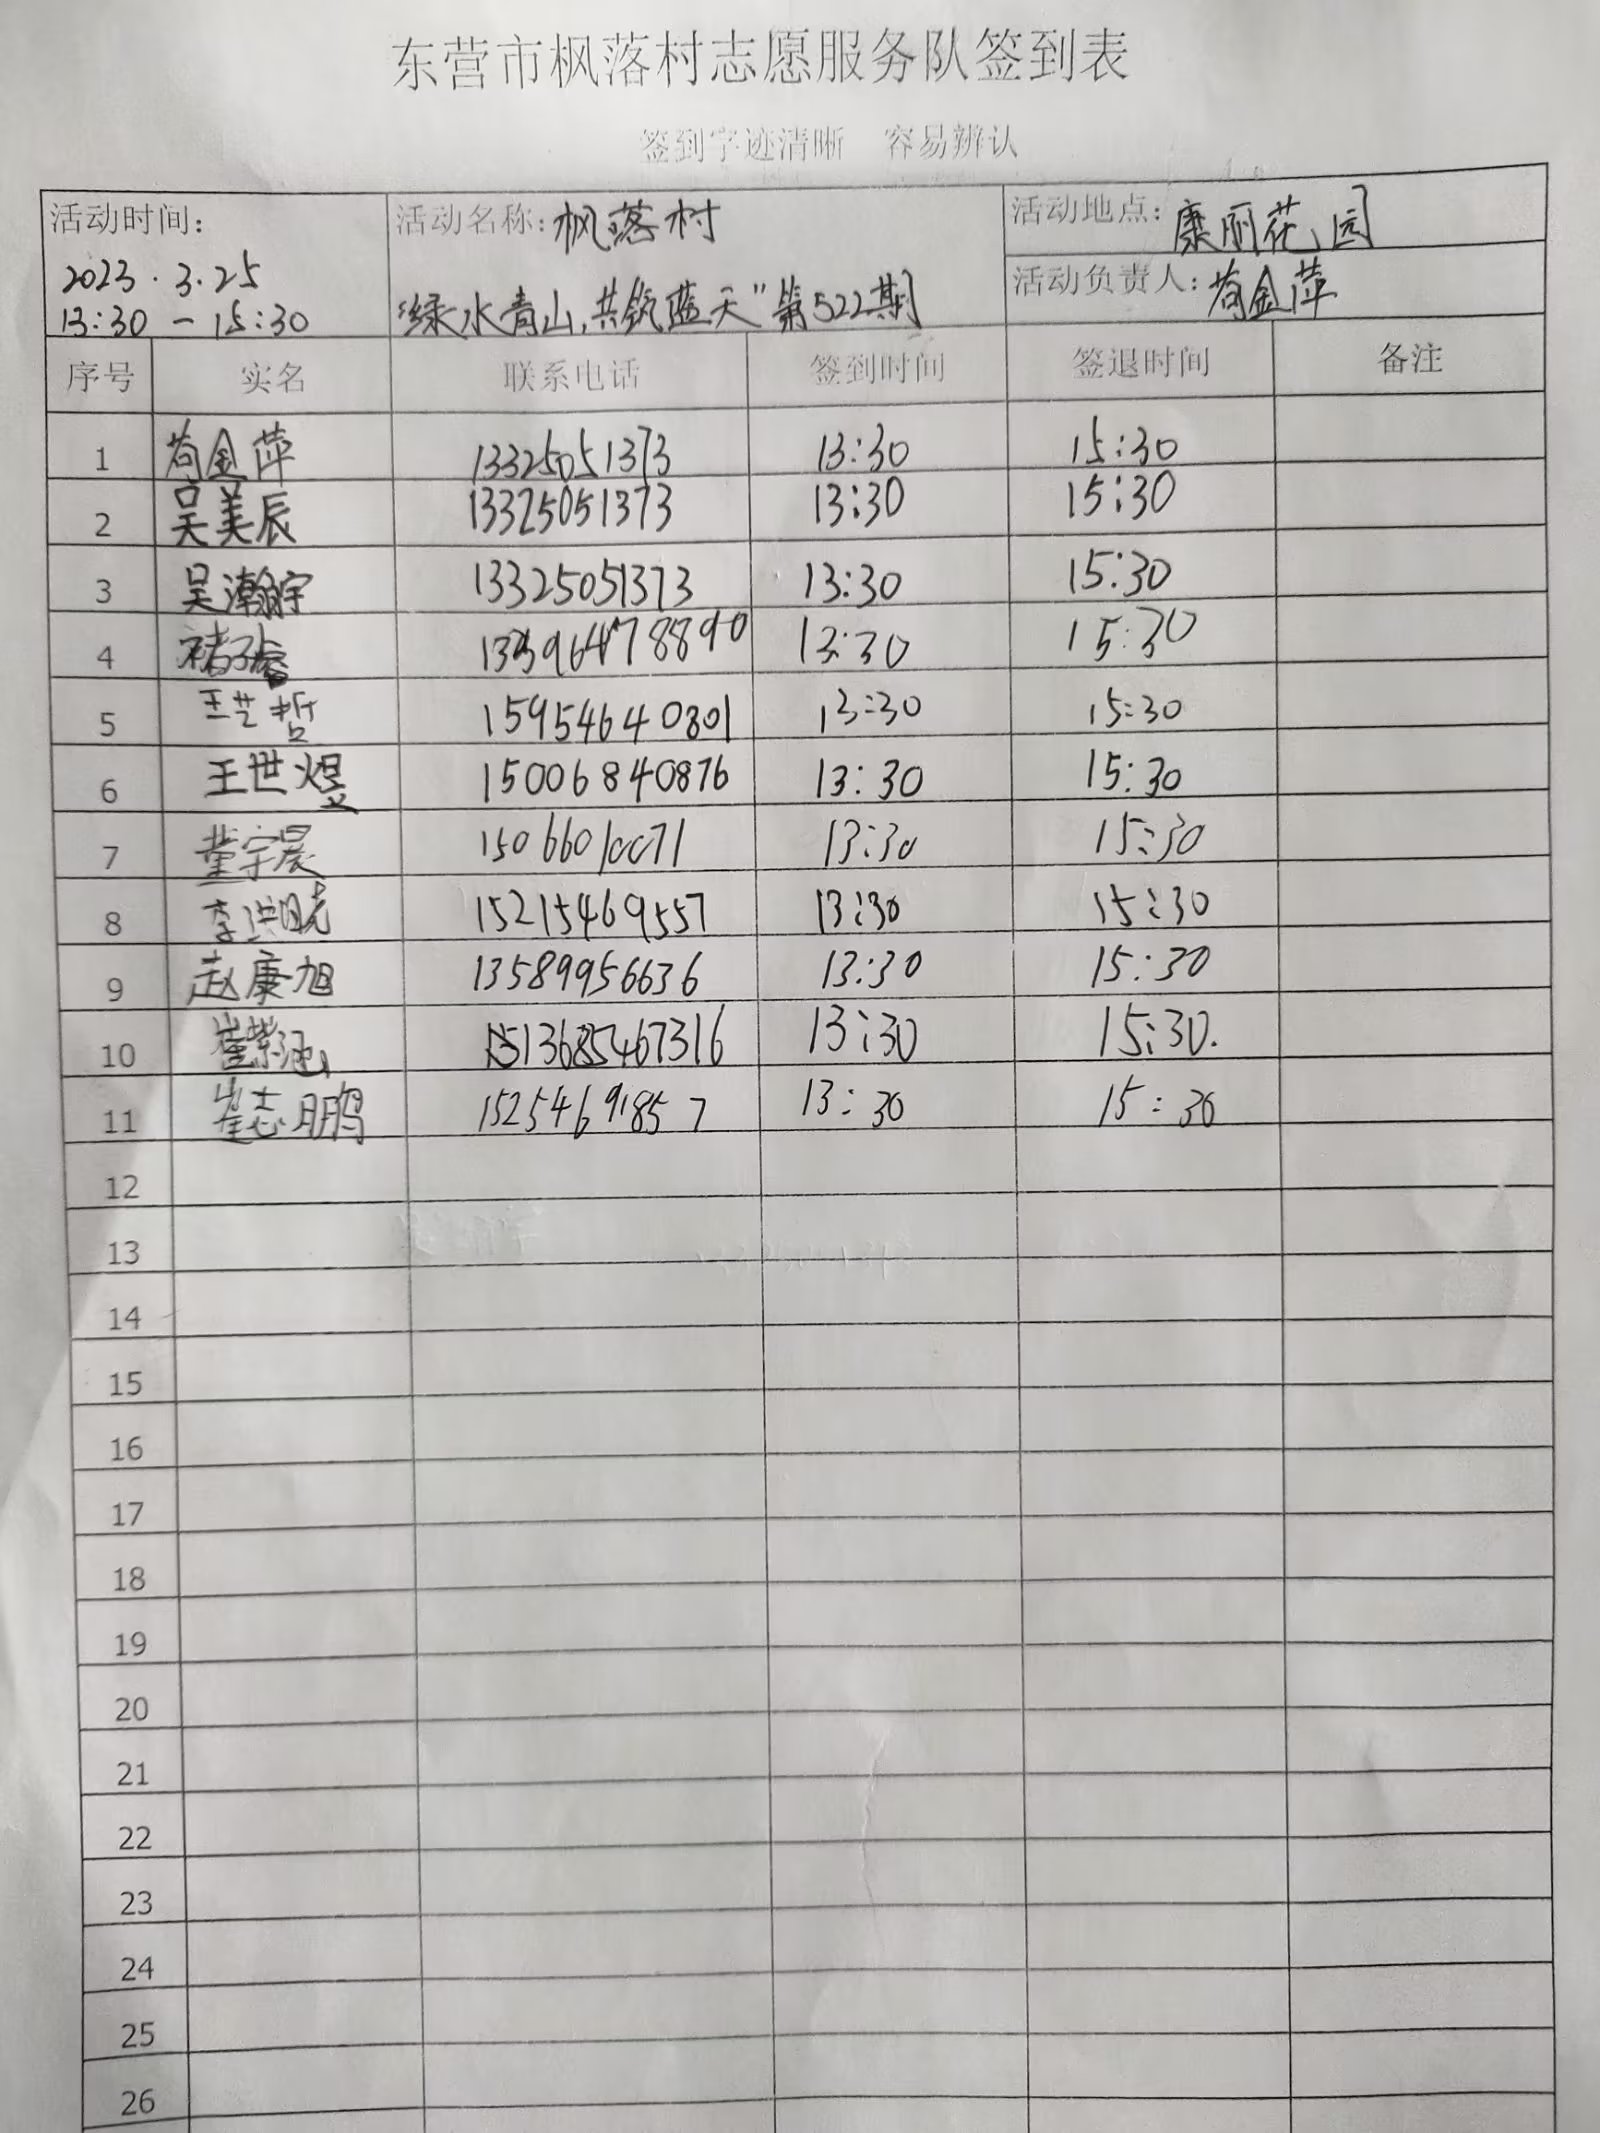 东营市枫落村志愿服务队签到表
签到字迹清晰 容易辨认
活动时间: 活动名称: 枫落村 活动地点: 康丽花园
2023.3.25 活动负责人: 苟金萍
13:30-15:30 "绿水青山,共筑蓝天"第522期
序号 实名 联系电话 签到时间 签退时间 备注
1 苟金萍 13325051373 13:30 15:30
2 吴美辰 13325051373 13:30 15:30
3 吴瀚宇 13325051373 13:30 15:30
4 褚子睿 13:30 15:30
5 王艺哲 15954640801 13:30 15:30
6 王世煜 15006840876 13:30 15:30
7 董宇晨 15066010071 13:30 15:30
8 李洪晓 15215469557 13:30 15:30
9 赵康旭 13589956636 13:30 15:30
10 崔紫涵 13685467316 13:30 15:30.
11 崔志鹏 15254691857 13:30 15:30
12
13
14
15
16
17
18
19
20
21
22
23
24
25
26